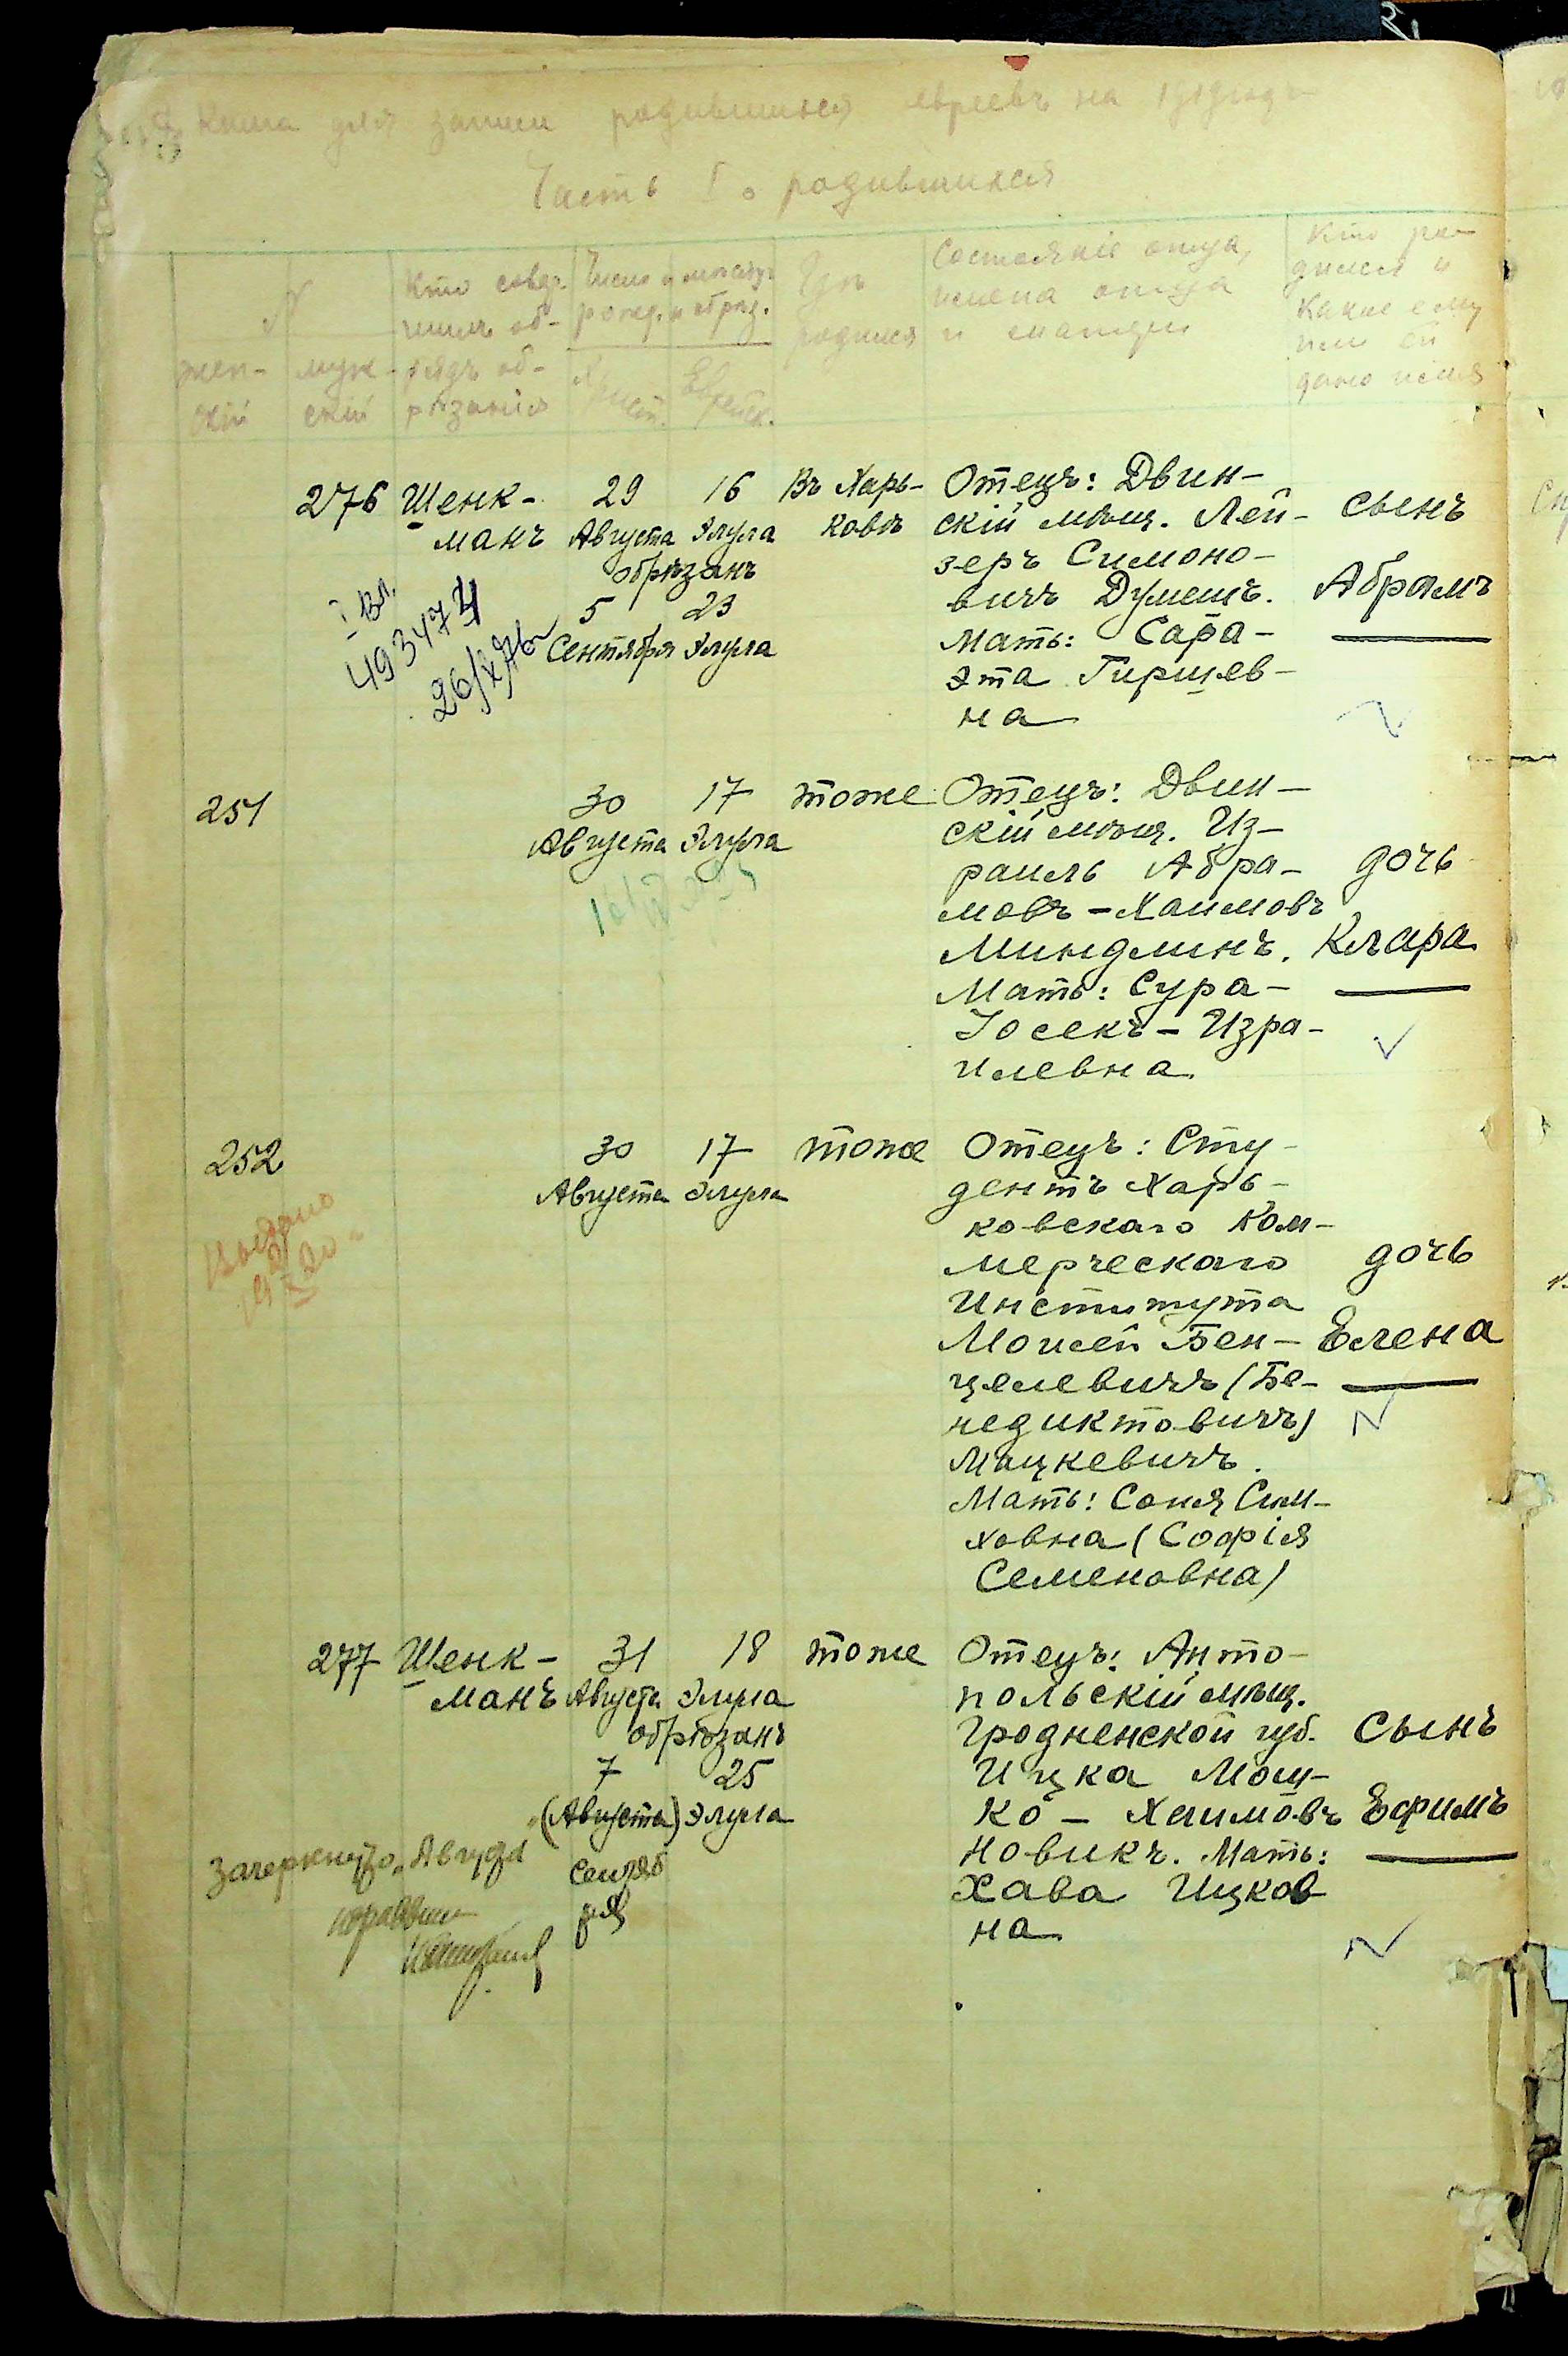 Книга для записи родившихся евреевъ на 1919 годъ
Часть I о родившихся
N
жен-
скій
муж-
скій
Кто совер-
шилъ об-
рядъ об-
рѣзанія
Число и мѣсяцъ
рожд. и обрѣз.
Христ.
Еврейск.
Гдѣ
родился
Состояніе отца,
имена отца
и матери
Кто ро-
дился и
какое ему
или ей
дано имя
276
Шенк-
манъ
29
Августа
16
Элула
обрѣзанъ
5
Сентября
23
Элула
Въ Харь-
ковѣ
Отецъ: Двин-
скій мѣщ. Лей-
зеръ Симоно-
вичъ Думешъ.
Мать: Сара-
Эта Гиршев-
на
сынъ
Абрамъ
493474
251
30
Августа
17
Элула
тоже
Отецъ: Двин-
скій мѣщ. Из-
раиль Абра-
мовъ-Хаимовъ
Миндлинъ.
Мать: Сура-
Іосекъ-Изра-
илевна
дочь
Клара
252
Выдано
30
Августа
17
Элула
тоже
Отецъ: Сту-
дентъ Харь-
ковскаго Ком-
мерческаго
Института
Моисей Бен-
целевичъ (Бе-
недиктовичъ)
Мацкевичъ.
Мать: Соня Сим-
ховна (Софія
Семеновна)
дочь
Елена
277
Шенк-
манъ
31
Августа
18
Элула
обрѣзанъ
7
(Августа)
25
Элула
Сентяб
ря
тоже
Отецъ: Анто-
польскій мѣщ.
Гродненской губ.
Ицка Мош-
ко - Хаимовъ
Новикъ. Мать:
Хава Ицков-
на
сынъ
Ефимъ
Зачеркнуто „Августа